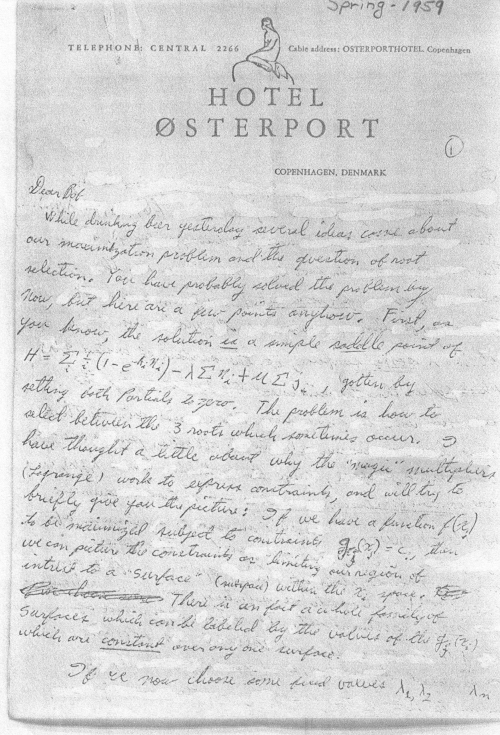 Spring - 1959
TELEPHONE: CENTRAL 2266 Cable address: OSTERPORTHOTEL, Copenhagen
HOTEL
ØSTERPORT
1
COPENHAGEN, DENMARK
Dear Bob
While drinking beer yesterday several ideas came about
our maximization problem and the question of root
selection. You have probably solved the problem by
now, but here are a few points anyhow. First, as
you know, the solution is a simple saddle point of
H = , gotten by
setting both Partials to zero. The problem is how to
select between the 3 roots which sometimes occur. I
have thought a little about why the "magic" multipliers
(Lagrange) work to express constraints, and will try to
briefly give you the picture: If we have a function f(xi)
to be maximized subject to constraints gj(xi) = cj, then
we can picture the constraints as limiting our region of
interest to a "surface" (subspace) within the xi space.
There is in fact a whole family of
surfaces which can be labeled by the values of the gj(xi)
which are constant over any one surface.
If we now choose some fixed values λ1, λ2 λn